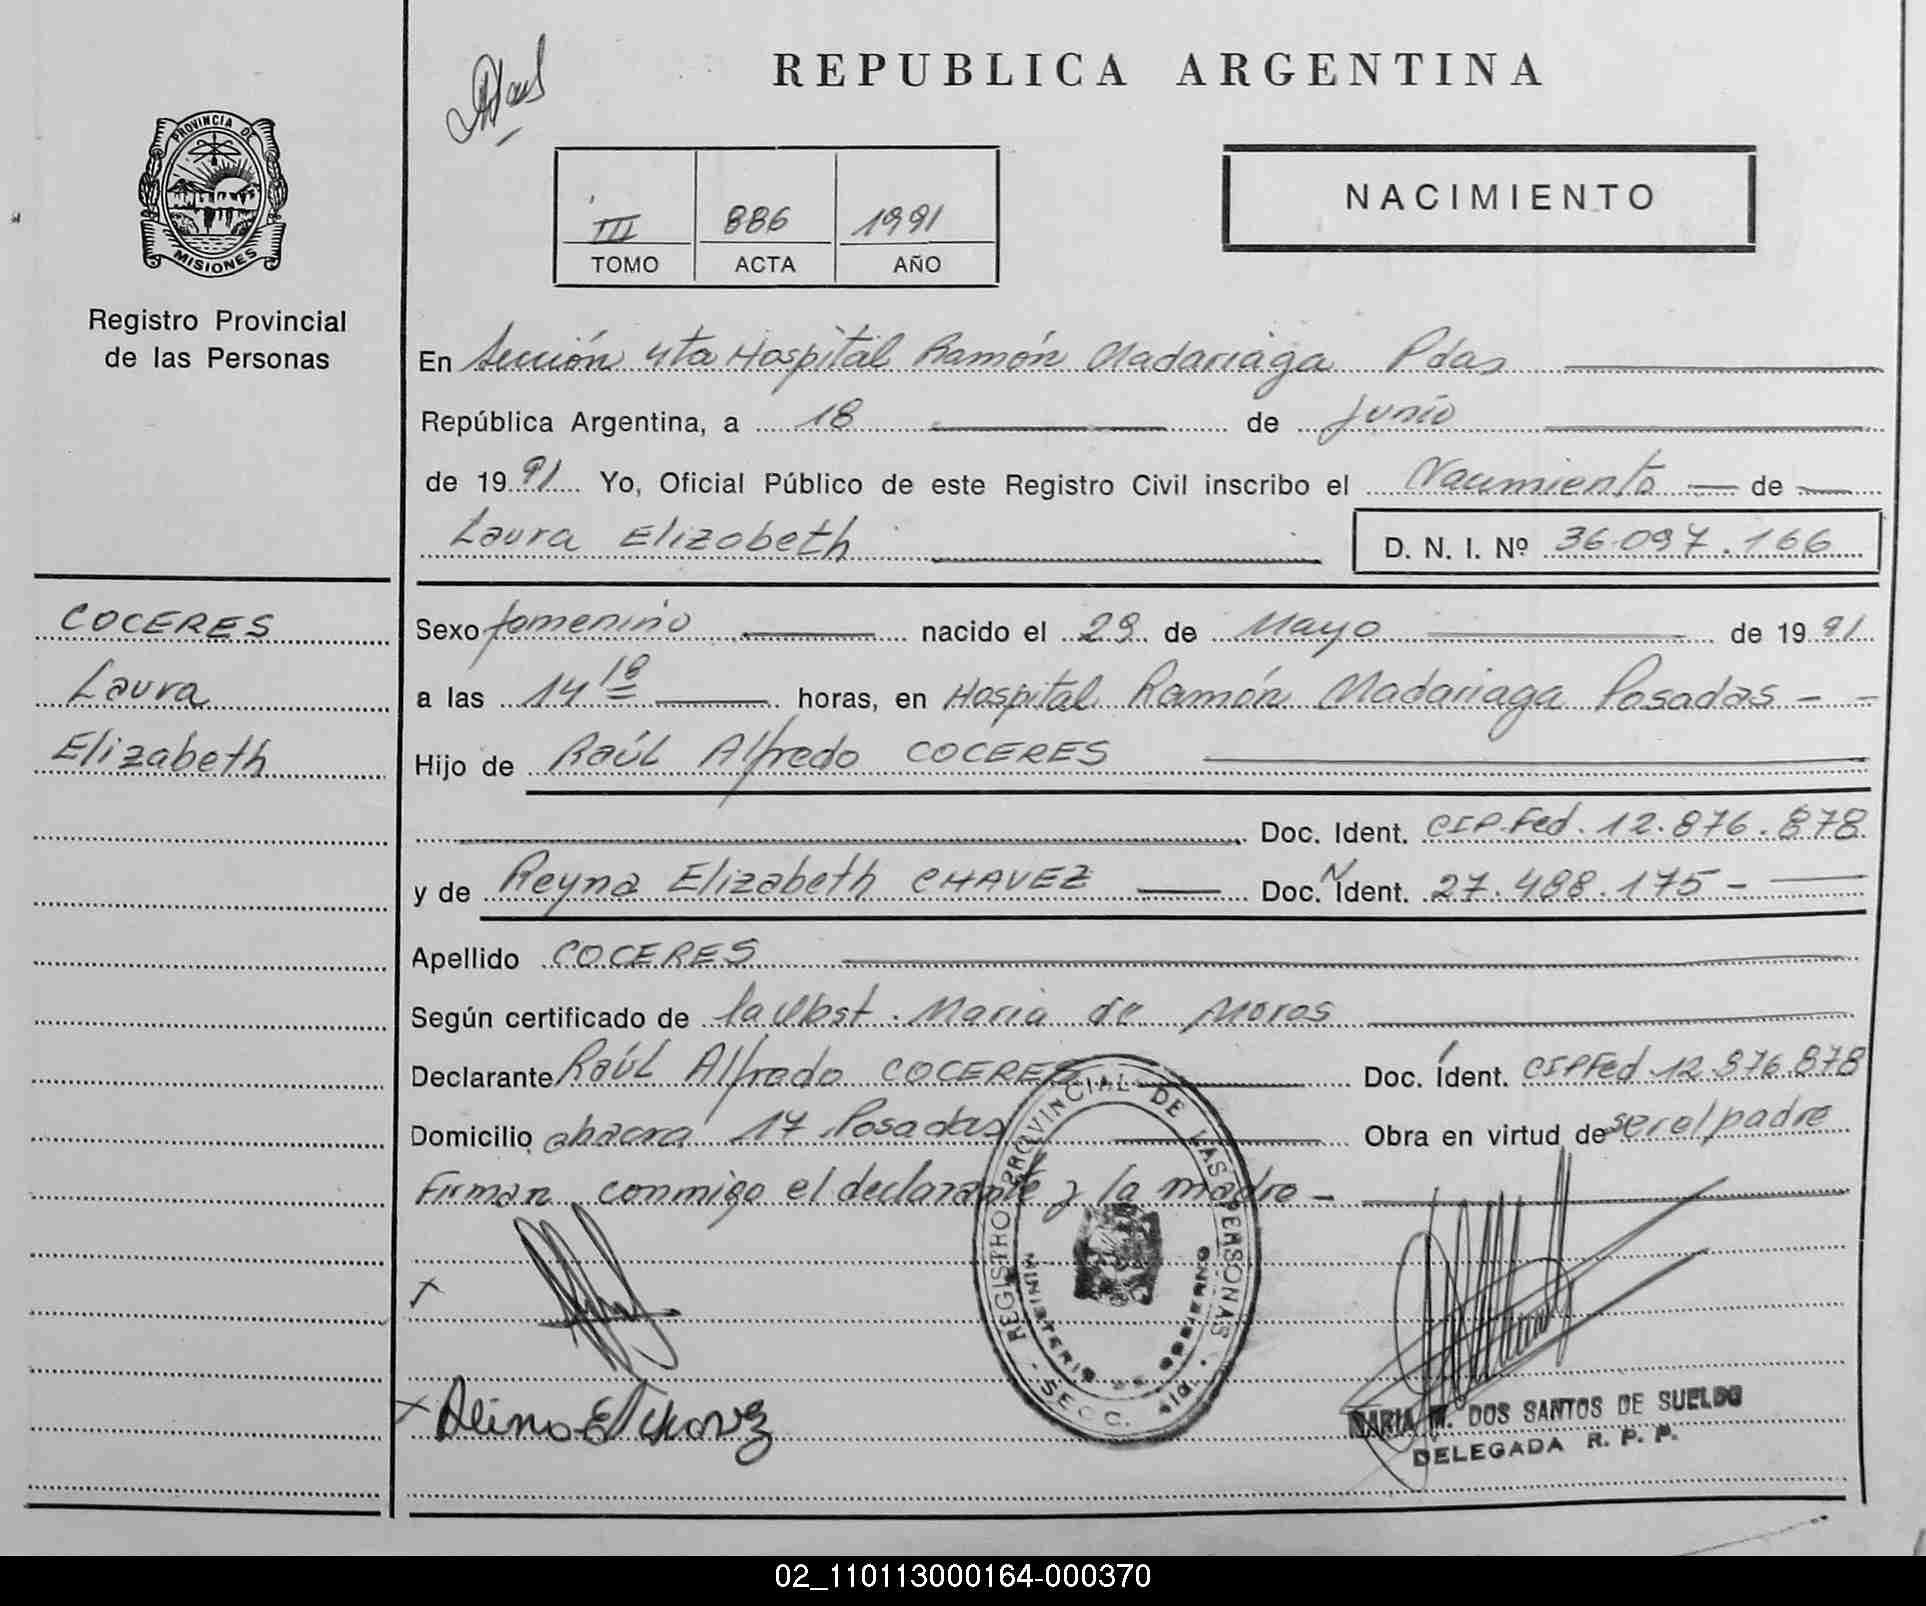 REPUBLICA ARGENTINA
PROVINCIA DE
MISIONES
Registro Provincial
de las Personas
III 886 1991
TOMO ACTA AÑO
NACIMIENTO
En Sección 4ta Hospital Ramón Madariaga Pdas
República Argentina, a 18 de junio
de 1991 Yo, Oficial Público de este Registro Civil inscribo el Nacimiento de
Laura Elizabeth D. N. I. Nº 36.097.166
COCERES
Laura
Elizabeth
Sexo femenino nacido el 29 de Mayo de 1991
a las 14 18 horas, en Hospital Ramón Madariaga Posadas - -
Hijo de Raúl Alfredo COCERES
Doc. Ident. CIP.Fed. 12.876.878
y de Reyna Elizabeth CHAVEZ Doc. N Ident. 27.488.175 -
Apellido COCERES
Según certificado de la Obst. Maria de Moros
Declarante Raúl Alfredo COCERES Doc. Ident. CIPFed 12.876.878
Domicilio chacra 17 Posadas Obra en virtud de ser el padre
Firman conmigo el declarante y la madre -
REGISTRO PROVINCIAL DE LAS PERSONAS
MINISTERIO DE GOBIERNO
SECC. 4ta.
MARIA M. DOS SANTOS DE SUELDO
DELEGADA R. P. P.
02_110113000164-000370